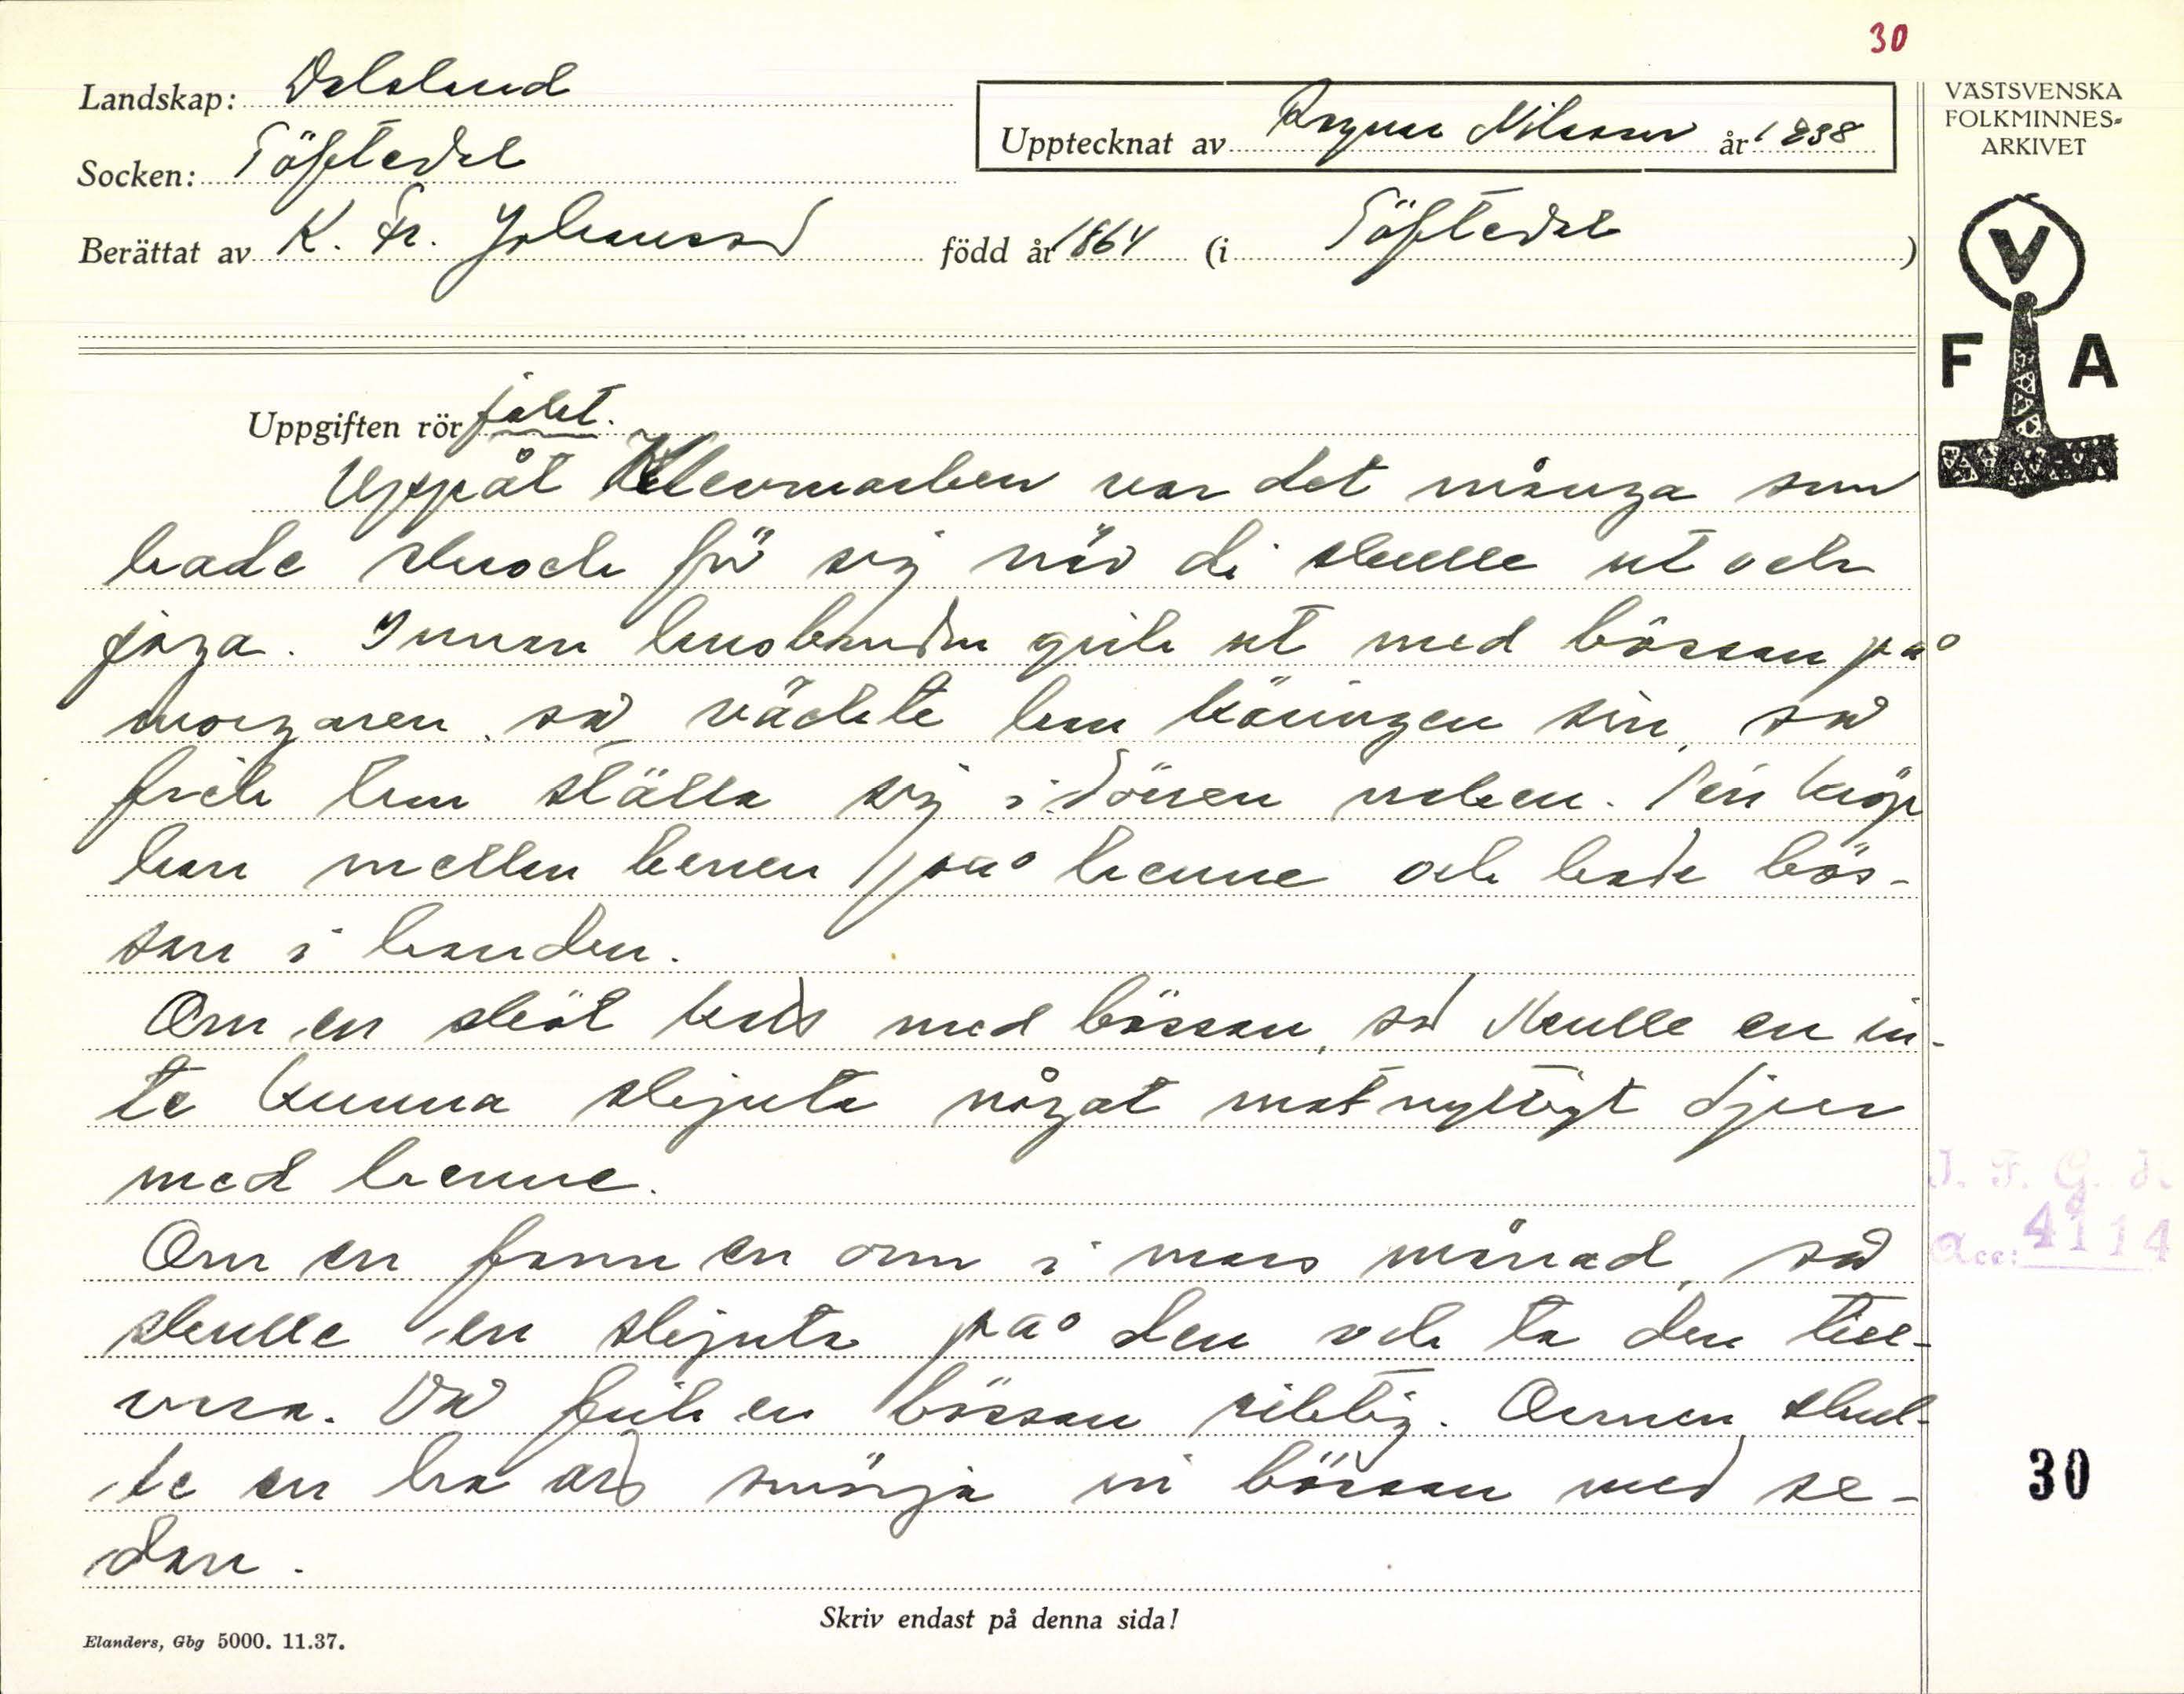 30
Landskap: Dalsland
Upptecknat av Ragnar Nilsson år 1938
VÄSTSVENSKA
FOLKMINNES-
ARKIVET
Socken: Töftedal
Berättat av K. Fr. Johansson född år 1864 (i Töftedal)
V
F A
Uppgiften rör jakt.
Uppåt Klevmarken var det många som
hade skrock för sig när di skulle ut och
jaga. Innan husbonden gick ut med bössan på
morgonen, så väckte han käringen sin, så
fick hon ställa sig i dören naken. Sen kröp
han mellan benen på henne och hade bös-
san i handen.
Om en sköt kors med bössan, så skulle en in-
te kunna skjuta något matnyttigt djur
med henne.
Om en fann en orm i mars månad, så
skulle en skjuta på den och ta den till-
vara. Då fick en bössan riktig. Ormen skul-
le en ha å smörja in bössan med se-
dan.
I. F. G. H.
Acc: 4114
30
Skriv endast på denna sida!
Elanders, Gbg 5000. 11.37.